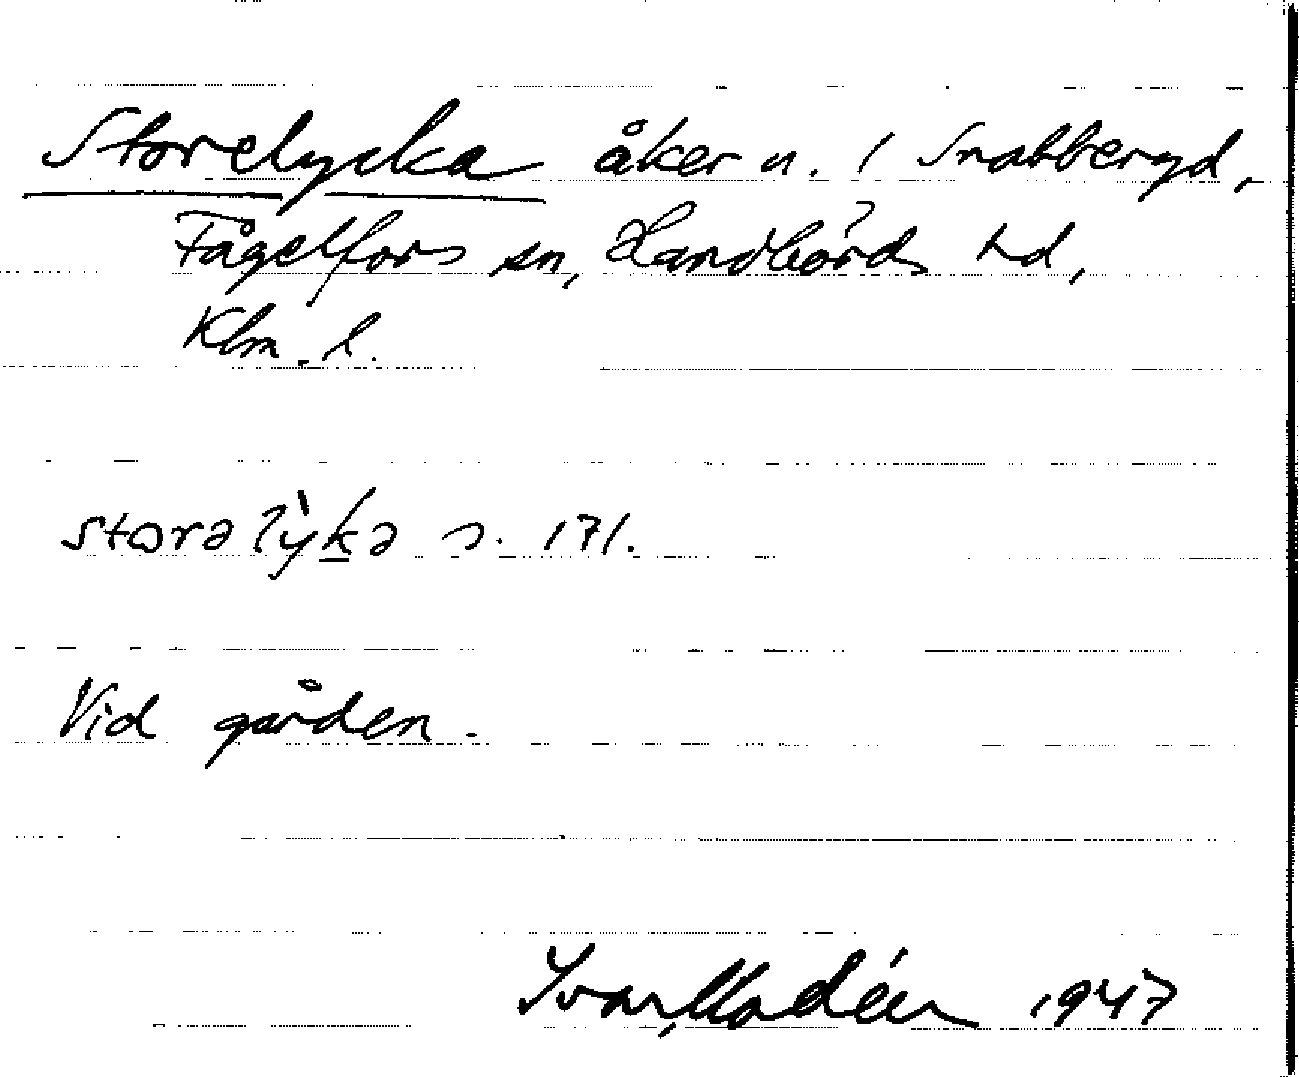 Storelycka åker n. 1 Snabberyd,
Fågelfors sn, Handbörds hd,
Klm. l.
storə lỳkə s. 171.
Vid gården.
Ivar Modéer 1947